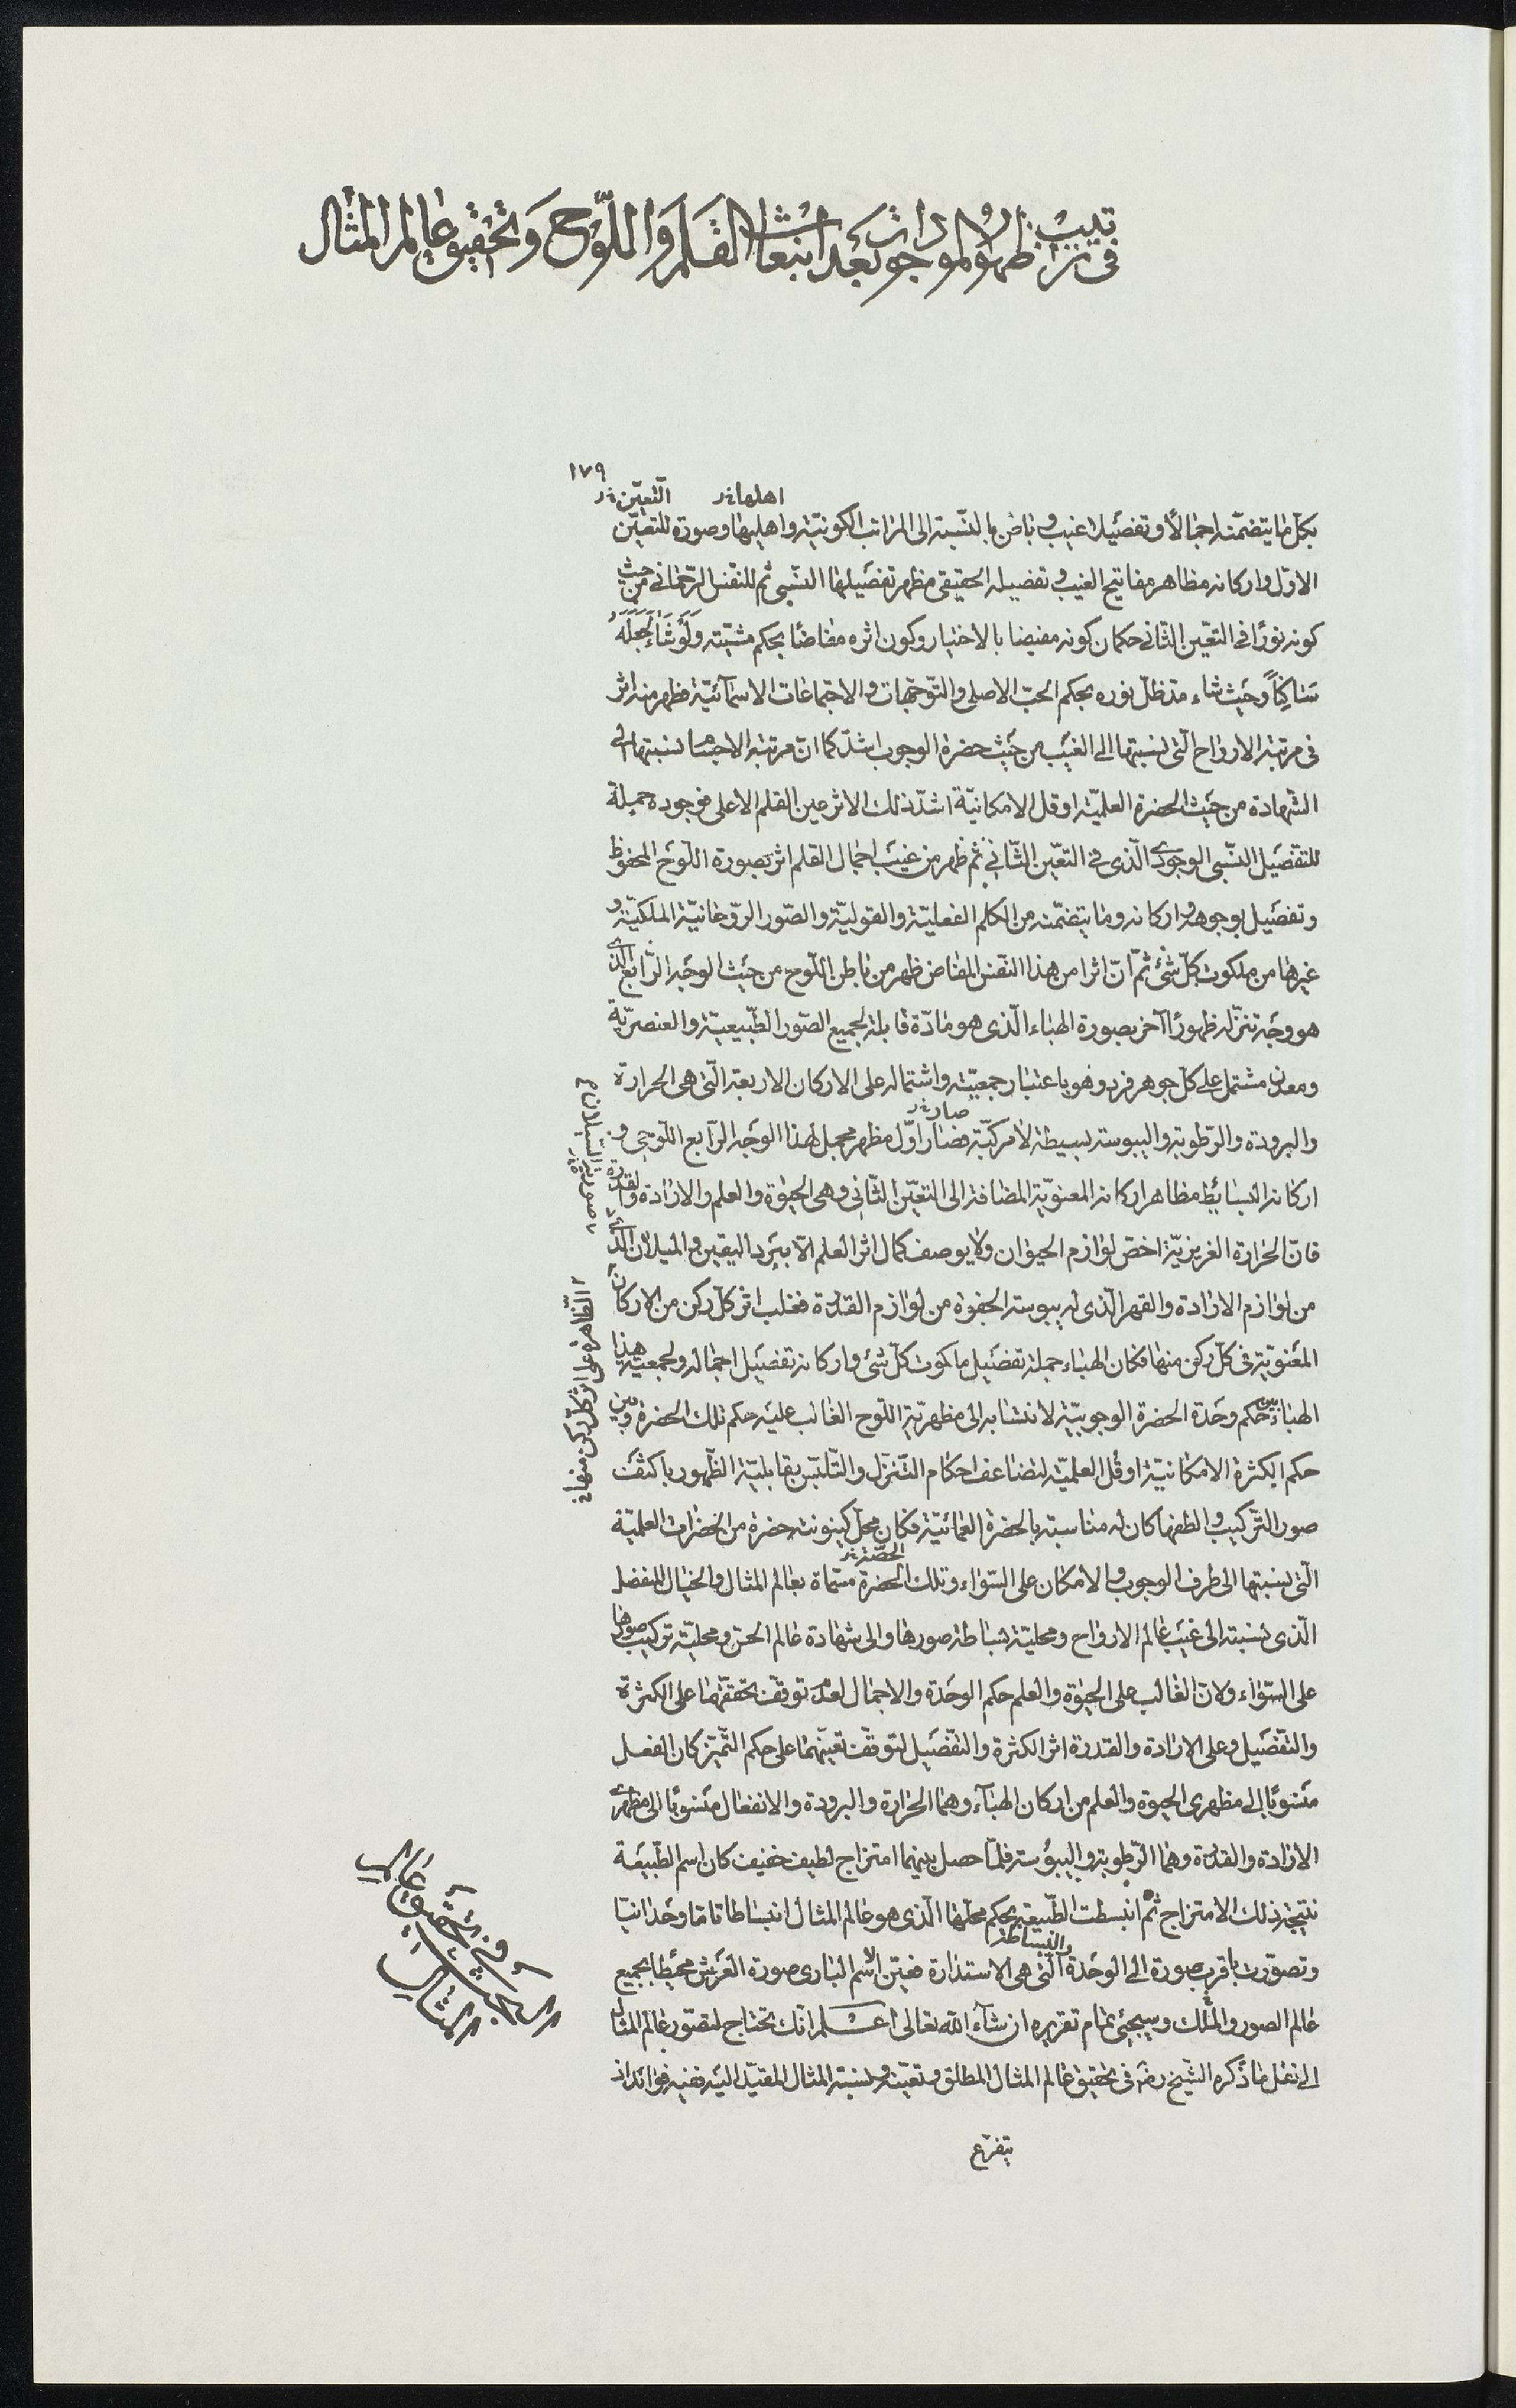 في ترتيب ظهور الموجودات بعد انبعاث القلم واللّوح وتحقيق عالم المثال
١٧٩
اهلها نر التّعيّن نر
بكلّ ما يتضمّنه اجمالاً وتفصيلا غيب وباطن بالنّسبة الى المراتب الكونيّة واهليها وصورة للتعيّن
الاوّل واركانه مظاهر مفاتيح الغيب وتفصيله الحقيقى مظهر تفصيلها النّسبى ثم للنفس الرّحمانى من حيث
كونه نورًا فى التعيّن الثّانى حكمان كونه مفيضا بالاختيار وكون اثره مفاضًا بحكم مشيّته وَلَوْ شَاءَ لَجَعَلَهُ
سَاكِنًا وحيث شاء مدّ ظلّ نوره بحكم الحبّ الاصلى والتّوجّهات والاجتماعات الاسمآئيّة فظهر منه اثر
فى مرتبة الارواح الّتى نسبتها الى الغيب من حيث حضرة الوجوب اشدّ كما انّ مرتبة الاجسام نسبتها الى
الشّهادة من حيث الحضرة العلميّة او قل الامكانيّة اشدّ ذلك الاثر عين القلم الاعلى فوجوده جميلة
للتفصيل النّسبى الوجودى الّذى فى التعيّن الثّانى ثم ظهر من غيب اجمال القلم اثر بصورة اللّوح المحفوظ
وتفصيل بوجوهه واركانه وما يتضمّنه من الكلم الفعليّة والقوليّة والصّور الرّوحانيّة الملكيّة و
غيرها من ملكوت كلّ شئ ثمّ انّ اثرا من هذا النفس المفاض ظهر من باطن اللّوح من حيث الوجه الرّابع الّذى
هو وجه تنزّله ظهورًا آخر بصورة الهباء الّذى هو مادّة قابلة لجميع الصّور الطّبيعيّة والعنصريّة
ومعدن مشتمل على كلّ جوهر فرد وهو باعتبار جمعيّته واشتماله على الاركان الاربعة الّتى هى الحرارة
صار نر
والبرودة والرّطوبة واليبوسة بسيطة لا مركّبة فصار اوّل مظهر مجمل لهذا الوجه الرّابع اللّوحى و
اركانه البسائط مظاهر اركانه المعنويّة المضافة الى التعيّن الثّانى وهى الحيوة والعلم والارادة والقدرة
فانّ الحرارة الغريزيّة اخصّ لوازم الحيوان ولا يوصف كمال اثر العلم الّا ببرد اليقين والميلان الّذى
من لوازم الارادة والقهر الّذى له يبوسة الجفوة من لوازم القدرة فغلب اثر كلّ ركن من الاركان
المعنويّة فى كلّ ركن منها فكان الهباء جملة تفصيل ملكوت كلّ شئ واركانه تفصيل اجماله ولجمعيّة هذا
الهباء بين حكم وحدة الحضرة الوجوبيّة لانتسابه الى مظهريّة اللّوح الغالب عليه حكم تلك الحضرة وبين
حكم الكثرة الامكانيّة او قل العلميّة لتضاعف احكام التّنزّل والتّلبّس بقابليّة الظّهور باكثف
صور التّركيب والطفها كان له مناسبة بالحضرة العمائيّة فكان محلّ كينونته حضرة من الحضرات العلميّة
الحصّة نر
الّتى نسبتها الى طرف الوجوب والامكان على السّواء وتلك الحضرة مسمّاة بعالم المثال والخيال المنفصل
الّذى نسبته الى غيب عالم الارواح ومحليّة بساطة صورها والى شهادة عالم الحسّ ومحليّة تركيب صورها
على السّواء ولانّ الغالب على الحيوة والعلم حكم الوحدة والاجمال لعدم توقّف تحقّقهما على الكثرة
والتّفصيل وعلى الارادة والقدرة اثر الكثرة والتّفصيل لتوقّف تعيّنهما على حكم التّميّز كان الفعل
منسوبًا الى مظهرى الحيوة والعلم من اركان الهبآء وهما الحرارة والبرودة والانفعال منسوبًا الى مظهرى
الارادة والقدرة وهما الرّطوبة واليبوسة فلمّا حصل بينهما امتزاج لطيف خفيف كان اسم الطّبيعة
نتيجة ذلك الامتزاج ثمّ انبسطت الطّبيعة بحكم محلّها الّذى هو عالم المثال انبساطا تامّا وحدانيّا
والبساطة
وتصوّرت باقرب صورة الى الوحدة الّتى هى الاستدارة فعيّن الاسم البارى صورة العرش محيطا بجميع
عالم الصور والملك وسيجئ تمام تقريره ان شآء اللّه تعالى اعلم انّك تحتاج لتصوّر عالم المثال
الى نقل ما ذكره الشّيخ رضه فى تحقيق عالم المثال المطلق وتعيّنه ونسبة المثال المقيّد اليه ففيه فوائد اذ
يتفرّع
السّيلان م
صورية
الظّاهرة على اثر كلّ ركن منها خ
البحث فى تحقيق عالم المثال